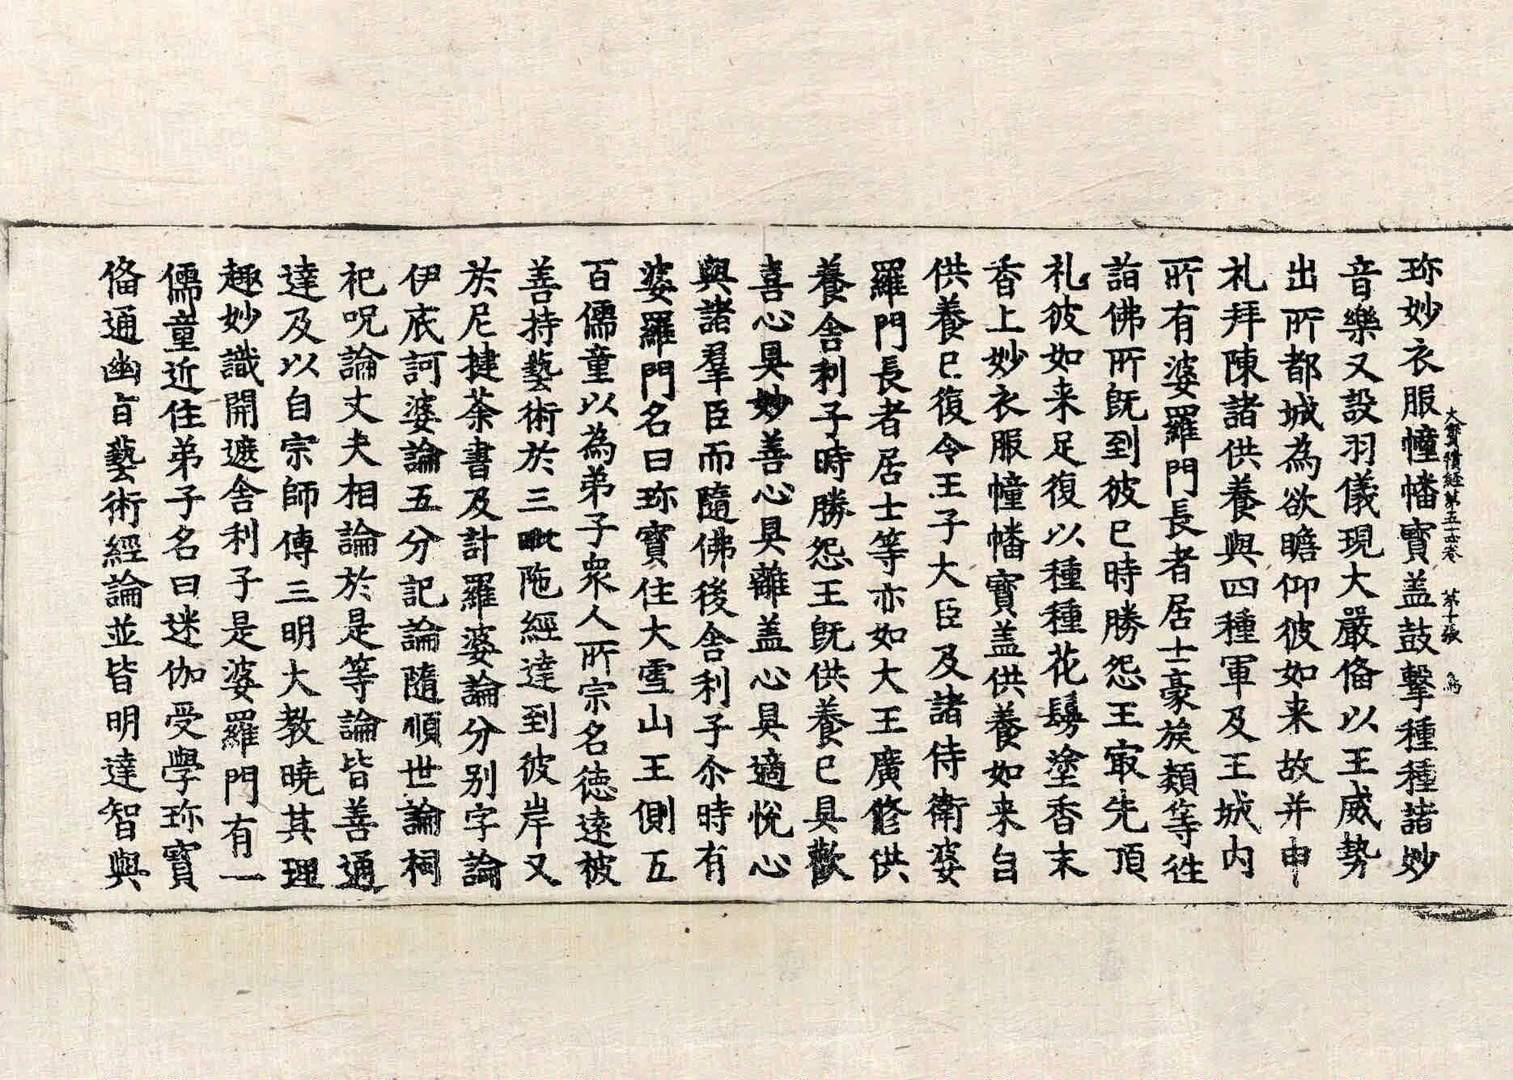 大寶積經第五十四卷 第十張 鳥
珎妙衣服幢幡寳盖鼓擊種種諸妙
音樂又設羽儀現大嚴俻以王威勢
出所都城為欲瞻仰彼如来故并申
礼拜陳諸供養與四種軍及王城内
所有婆羅門長者居士豪族類等徃
詣佛所旣到彼已時勝怨王冣先頂
礼彼如来足復以種種花鬘塗香末
香上妙衣服幢幡寳盖供養如来自
供養已復令王子大臣及諸侍衛婆
羅門長者居士等亦如大王廣修供
養舎利子時勝怨王旣供養已具歡
喜心具妙善心具離盖心具適恱心
與諸羣臣而隨佛後舎利子尒時有
婆羅門名曰珎寳住大雪山王側五
百儒童以為弟子衆人所宗名徳逺被
善持藝術於三毗陁經達到彼岸又
於尼揵荼書及計羅婆論分别字論
伊底訶婆論五分記論隨順世論祠
祀呪論丈夫相論於是等論皆善通
達及以自宗師傳三明大教曉其理
趣妙識開遮舎利子是婆羅門有一
儒童近住弟子名曰迷伽受學珎寳
俻通幽㫖藝術經論並皆明達智與